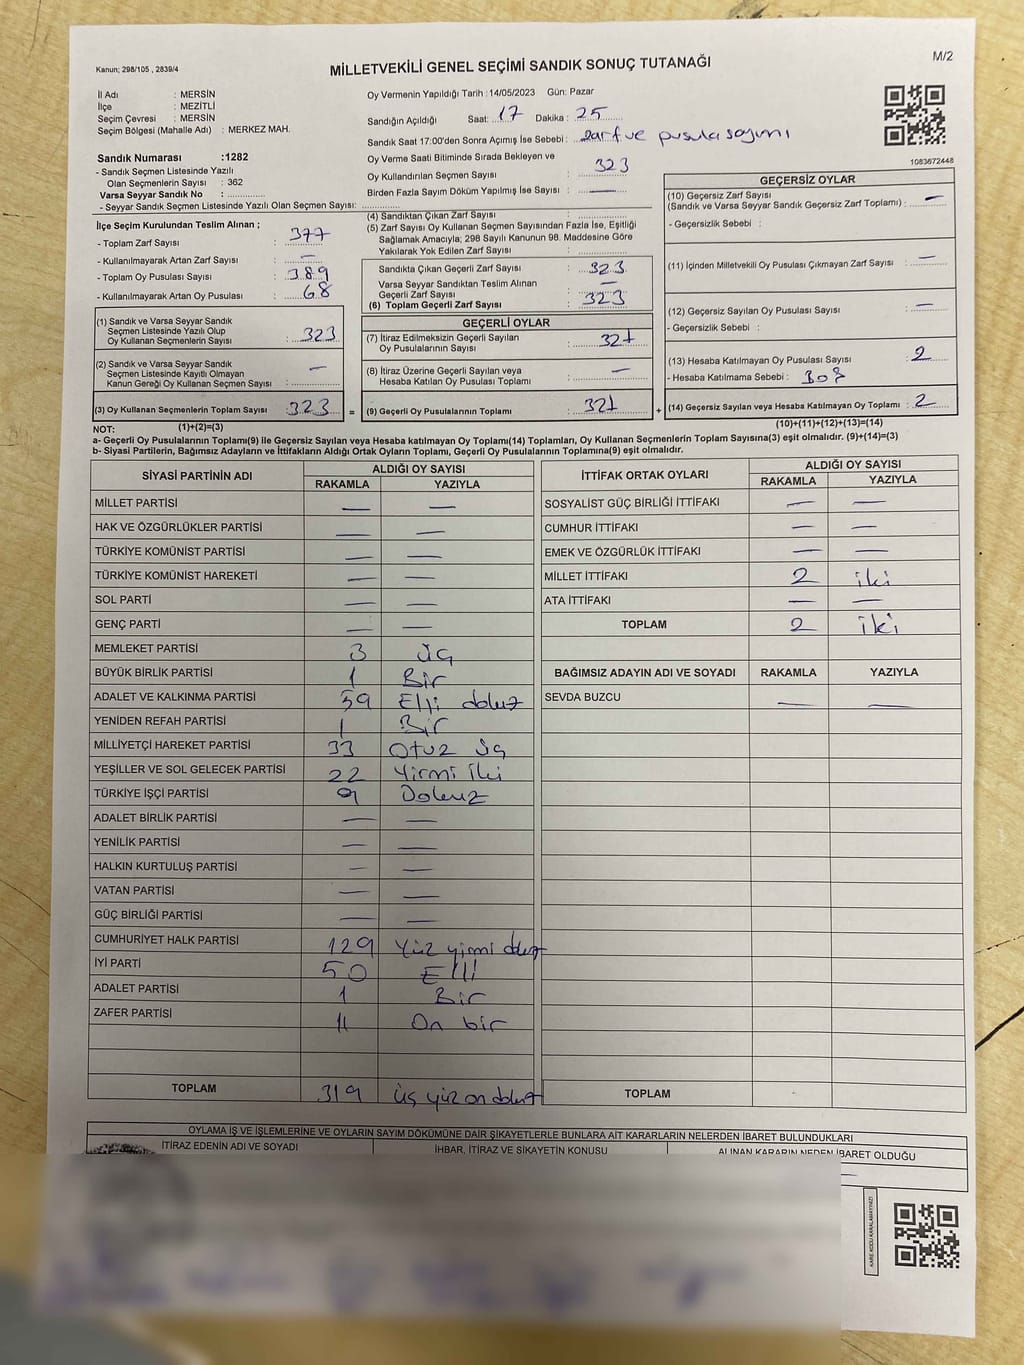 Kanun; 298/105 , 2839/4
M/2
MİLLETVEKİLİ GENEL SEÇİMİ SANDIK SONUÇ TUTANAĞI
İl Adı : MERSİN
İlçe : MEZİTLİ
Seçim Çevresi : MERSİN
Seçim Bölgesi (Mahalle Adı) : MERKEZ MAH.
Sandık Numarası :1282
- Sandık Seçmen Listesinde Yazılı
Olan Seçmenlerin Sayısı : 362
Varsa Seyyar Sandık No : ............
- Seyyar Sandık Seçmen Listesinde Yazılı Olan Seçmen Sayısı: ............
Oy Vermenin Yapıldığı Tarih :14/05/2023 Gün: Pazar
Sandığın Açıldığı Saat: 17 Dakika : 25
Sandık Saat 17:00'den Sonra Açımış İse Sebebi : zarf ve pusula sayımı
Oy Verme Saati Bitiminde Sırada Bekleyen ve
Oy Kullandırılan Seçmen Sayısı : 323
Birden Fazla Sayım Döküm Yapılmış İse Sayısı : —
1083672448
İlçe Seçim Kurulundan Teslim Alınan ;
- Toplam Zarf Sayısı : 377
- Kullanılmayarak Artan Zarf Sayısı : —
- Toplam Oy Pusulası Sayısı : 389
- Kullanılmayarak Artan Oy Pusulası : 68
(1) Sandık ve Varsa Seyyar Sandık
Seçmen Listesinde Yazılı Olup
Oy Kullanan Seçmenlerin Sayısı : 323
(2) Sandık ve Varsa Seyyar Sandık
Seçmen Listesinde Kayıtlı Olmayan
Kanun Gereği Oy Kullanan Seçmen Sayısı : —
(3) Oy Kullanan Seçmenlerin Toplam Sayısı : 323 =
(1)+(2)=(3)
(4) Sandıktan Çıkan Zarf Sayısı : ............
(5) Zarf Sayısı Oy Kullanan Seçmen Sayısından Fazla İse, Eşitliği
Sağlamak Amacıyla; 298 Sayılı Kanunun 98. Maddesine Göre
Yakılarak Yok Edilen Zarf Sayısı : ............
Sandıkta Çıkan Geçerli Zarf Sayısı : 323
Varsa Seyyar Sandıktan Teslim Alınan
Geçerli Zarf Sayısı : —
(6) Toplam Geçerli Zarf Sayısı : 323
GEÇERLİ OYLAR
(7) İtiraz Edilmeksizin Geçerli Sayılan
Oy Pusulalarının Sayısı : 321
(8) İtiraz Üzerine Geçerli Sayılan veya
Hesaba Katılan Oy Pusulası Toplamı : —
(9) Geçerli Oy Pusulalarının Toplamı : 321 +
GEÇERSİZ OYLAR
(10) Geçersiz Zarf Sayısı
(Sandık ve Varsa Seyyar Sandık Geçersiz Zarf Toplamı) : —
- Geçersizlik Sebebi :
(11) İçinden Milletvekili Oy Pusulası Çıkmayan Zarf Sayısı : —
(12) Geçersiz Sayılan Oy Pusulası Sayısı : —
- Geçersizlik Sebebi :
(13) Hesaba Katılmayan Oy Pusulası Sayısı : 2
- Hesaba Katılmama Sebebi : Boş
(14) Geçersiz Sayılan veya Hesaba Katılmayan Oy Toplamı : 2
(10)+(11)+(12)+(13)=(14)
NOT:
a- Geçerli Oy Pusulalarının Toplamı(9) ile Geçersiz Sayılan veya Hesaba katılmayan Oy Toplamı(14) Toplamları, Oy Kullanan Seçmenlerin Toplam Sayısına(3) eşit olmalıdır. (9)+(14)=(3)
b- Siyasi Partilerin, Bağımsız Adayların ve İttifakların Aldığı Ortak Oyların Toplamı, Geçerli Oy Pusulalarının Toplamına(9) eşit olmalıdır.
SİYASİ PARTİNİN ADI ALDIĞI OY SAYISI
RAKAMLA YAZIYLA
MİLLET PARTİSİ — —
HAK VE ÖZGÜRLÜKLER PARTİSİ — —
TÜRKİYE KOMÜNİST PARTİSİ — —
TÜRKİYE KOMÜNİST HAREKETİ — —
SOL PARTİ — —
GENÇ PARTİ — —
MEMLEKET PARTİSİ 3 üç
BÜYÜK BİRLİK PARTİSİ 1 Bir
ADALET VE KALKINMA PARTİSİ 59 Elli dokuz
YENİDEN REFAH PARTİSİ 1 Bir
MİLLİYETÇİ HAREKET PARTİSİ 33 Otuz üç
YEŞİLLER VE SOL GELECEK PARTİSİ 22 Yirmi iki
TÜRKİYE İŞÇİ PARTİSİ 9 Dokuz
ADALET BİRLİK PARTİSİ — —
YENİLİK PARTİSİ — —
HALKIN KURTULUŞ PARTİSİ — —
VATAN PARTİSİ — —
GÜÇ BİRLİĞİ PARTİSİ — —
CUMHURİYET HALK PARTİSİ 129 Yüz yirmi dokuz
İYİ PARTİ 50 Elli
ADALET PARTİSİ 1 Bir
ZAFER PARTİSİ 11 On bir
TOPLAM 319 üç yüz on dokuz
İTTİFAK ORTAK OYLARI ALDIĞI OY SAYISI
RAKAMLA YAZIYLA
SOSYALİST GÜÇ BİRLİĞİ İTTİFAKI — —
CUMHUR İTTİFAKI — —
EMEK VE ÖZGÜRLÜK İTTİFAKI — —
MİLLET İTTİFAKI 2 iki
ATA İTTİFAKI — —
TOPLAM 2 iki
BAĞIMSIZ ADAYIN ADI VE SOYADI RAKAMLA YAZIYLA
SEVDA BUZCU — —
TOPLAM
OYLAMA İŞ VE İŞLEMLERİNE VE OYLARIN SAYIM DÖKÜMÜNE DAİR ŞİKAYETLERLE BUNLARA AİT KARARLARIN NELERDEN İBARET BULUNDUKLARI
İTİRAZ EDENİN ADI VE SOYADI İHBAR, İTİRAZ VE ŞİKAYETİN KONUSU ALINAN KARARIN NEDEN İBARET OLDUĞU
KARE KODU KARALAMAYINIZ!